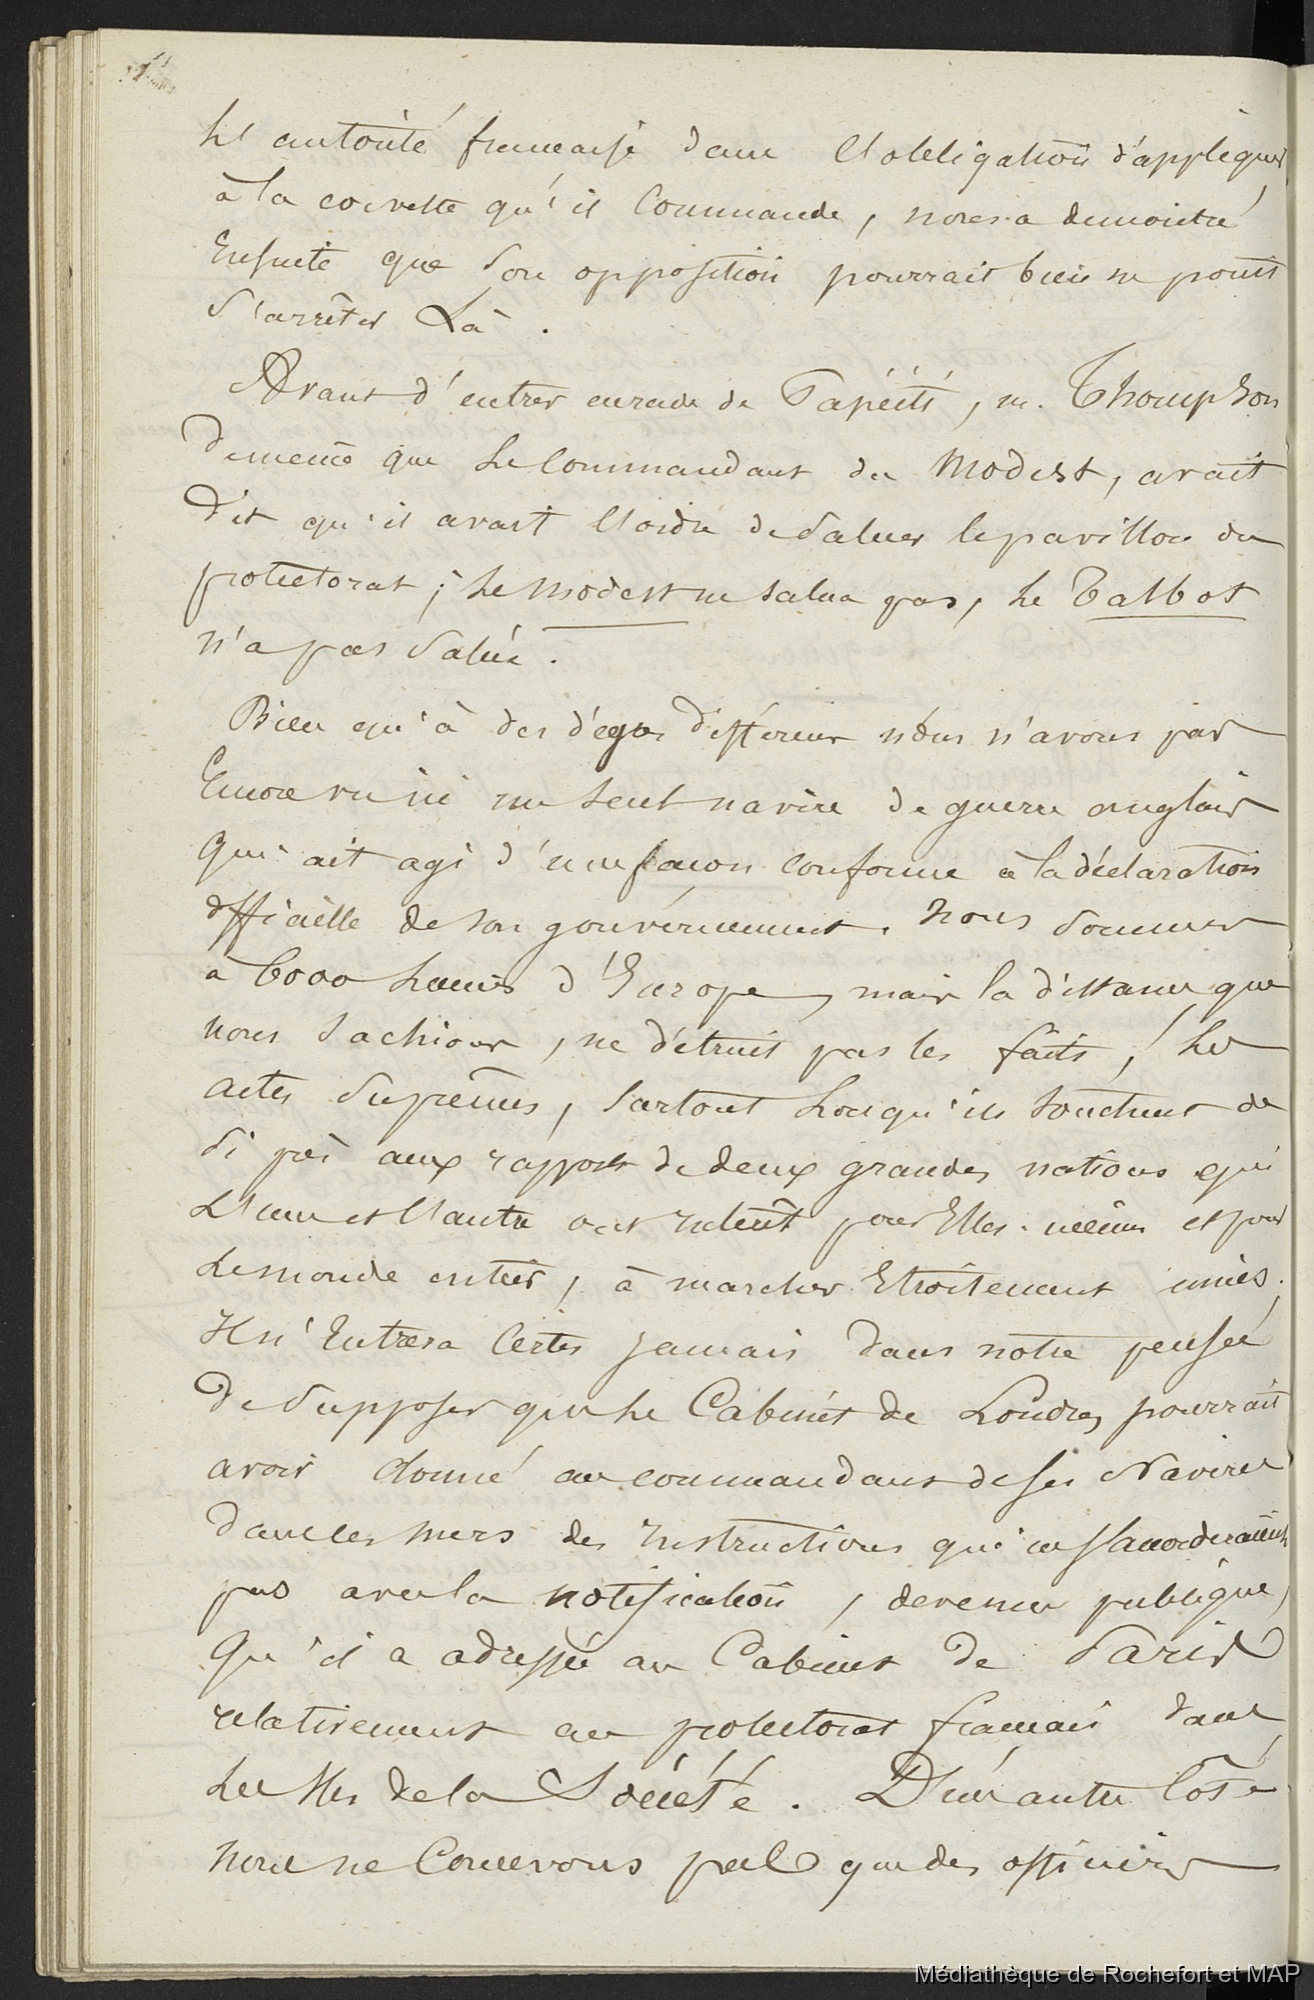 les autorité française dans l'obligation d'appliquer
à la corvette qu'il commande, nous a demontré
Ensuite que son opposition pourrait bien ne point
s'arrêter Là.
Avant d'entrer en rade de Papéïti, m. Thompson
de même que le Commandant du Modest, avait
dit qu'il avait l'ordre de saluer le pavillon du
protectorat ; le modest ne salua pas, le Talbot
n'a pas salué.
Bien qu'à des dégrés différens nous n'avons pas
Encore vu ici un seul navire de guerre anglais
qui ait agi d'une façon conforme à la déclaration
officielle de son gouvernement. nous sommes
a 6000 lieues d'Europe, mais la distance que
nous sachions, ne détruit pas les faits, les
actes suprêmes, surtout lorsqu'ils touchent de
si près aux rapports de deux grandes nations qui
L'une et l'autre ont intérêt pour Elles-mêmes et pour
le monde entier, à marcher Etroitement unies.
Il n'Entrera Certes jamais dans notre pensée
de supposer que le Cabinet de Londres pourrait
avoir donné au commandant de ses Navires
dans les mers des instructions qui ne s'accorderaient
pas avec la notification, devenue publique,
qu'il a adressée au Cabinet de Paris
relativement au protectorat français dans
les Iles de la Société. D'un autre Côté
nous ne Concevons pas que des officiers
Médiathèque de Rochefort et MAP